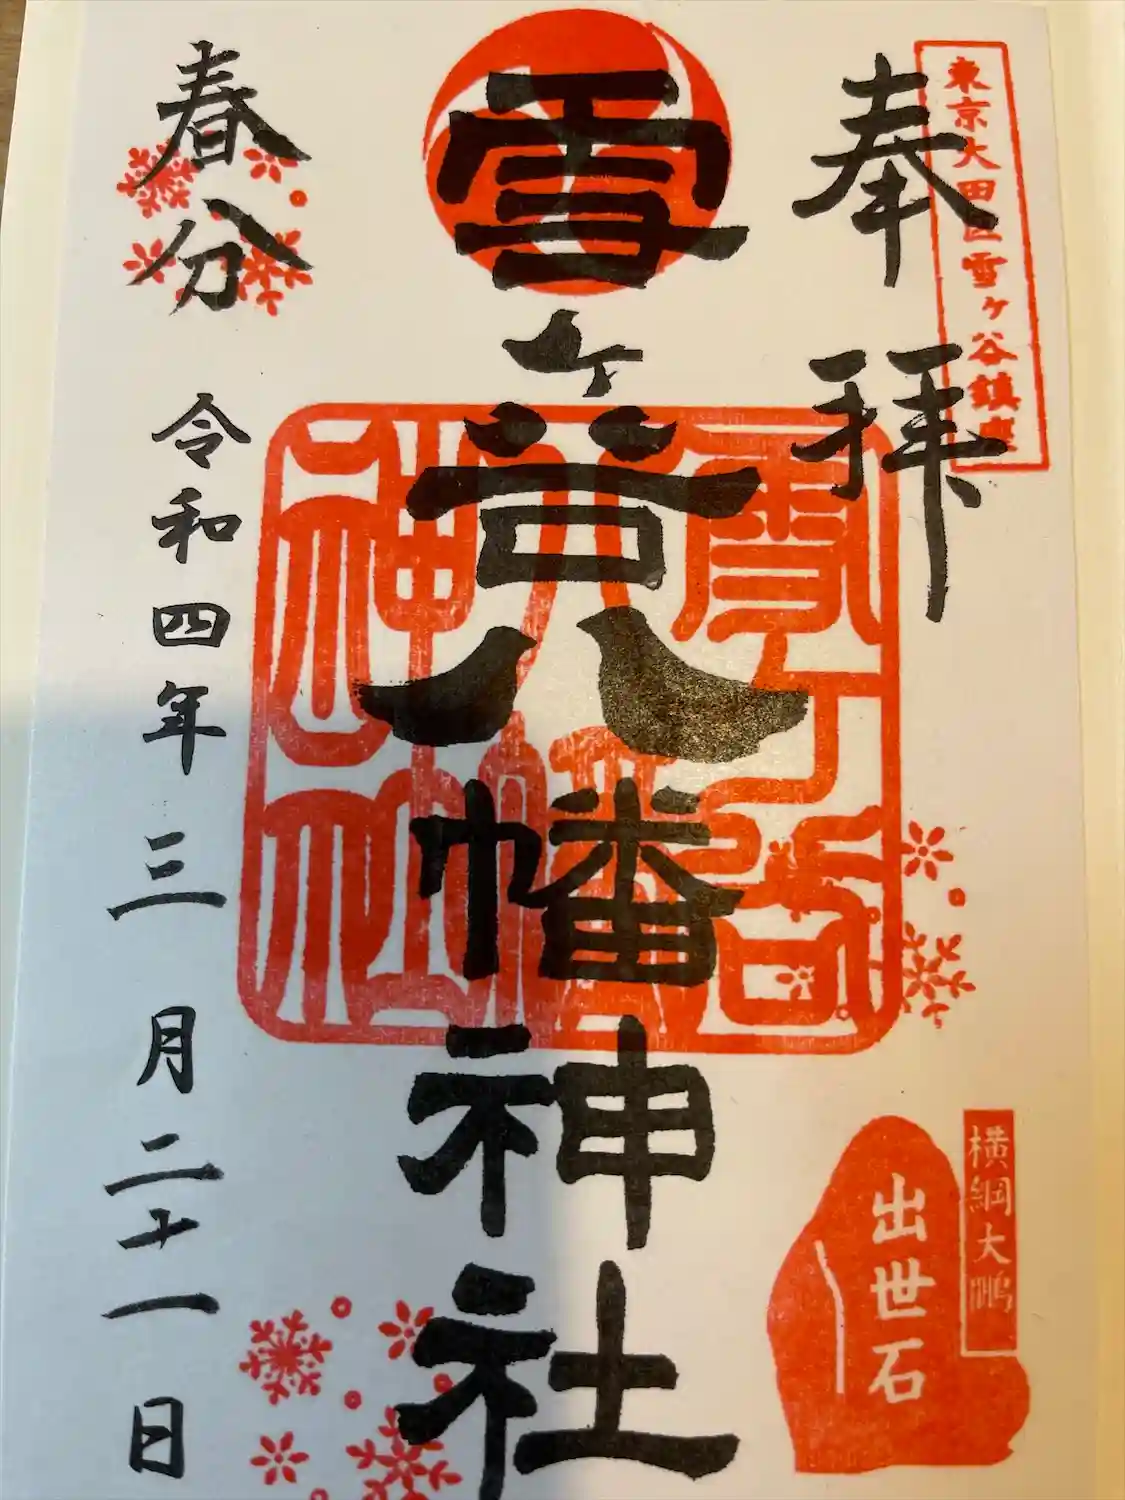 東京大田区雪ヶ谷鎮座
奉拝
雪ヶ谷八幡神社
雪ヶ谷
八幡
神社
横綱大鵬
出世石
春分
令和四年三月二十一日